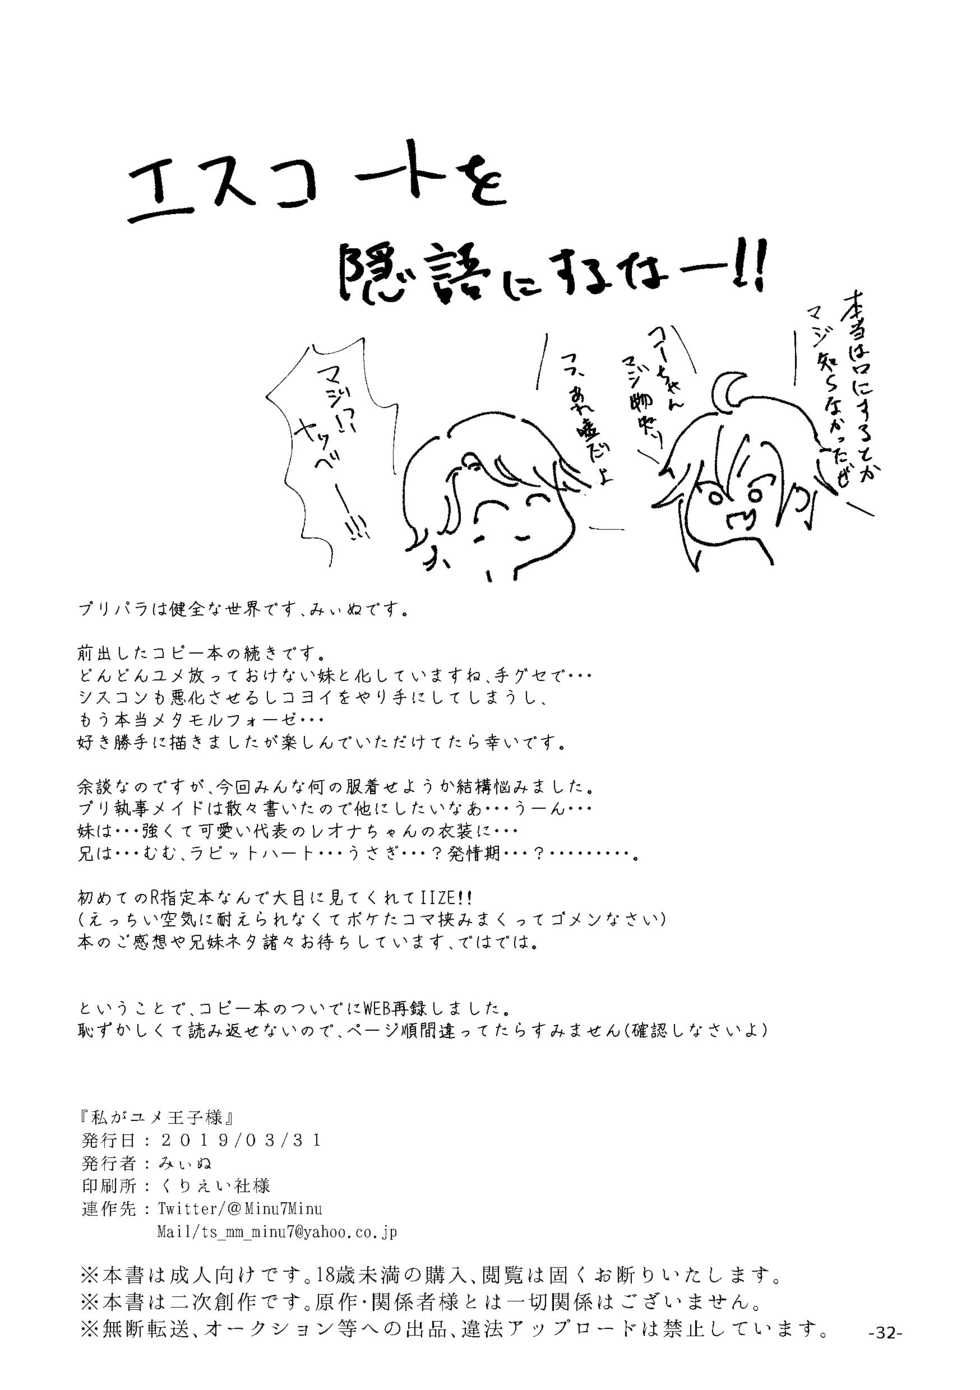 エスコートを
隠語にするなー!!
本当は口にするとか
マジ知らなかったぜ
コーちゃん
マジ物知り
フフ、あれ嘘だよ
マジ!?
ヤッベー!!!
プリパラは健全な世界です、みぃぬです。
前出したコピー本の続きです。
どんどんユメ放っておけない妹と化していますね、手グセで・・・
シスコンも悪化させるしコヨイをやり手にしてしまうし、
もう本当メタモルフォーゼ・・・
好き勝手に描きましたが楽しんでいただけてたら幸いです。
余談なのですが、今回みんな何の服着せようか結構悩みました。
プリ執事メイドは散々書いたので他にしたいなあ・・・うーん・・・
妹は・・・強くて可愛い代表のレオナちゃんの衣装に・・・
兄は・・・むむ、ラビットハート・・・うさぎ・・・？発情期・・・？・・・・・・・・・。
初めてのR指定本なんで大目に見てくれてIIZE!!
(えっちい空気に耐えられなくてボケたコマ挟みまくってゴメンなさい)
本のご感想や兄妹ネタ諸々お待ちしています、ではでは。
ということで、コピー本のついでにWEB再録しました。
恥ずかしくて読み返せないので、ページ順間違ってたらすみません(確認しなさいよ)
『私がユメ王子様』
発行日：２０１９/０３/３１
発行者：みぃぬ
印刷所：くりえい社様
連作先：Twitter/@Minu7Minu
Mail/ts_mm_minu7@yahoo.co.jp
※本書は成人向けです。18歳未満の購入、閲覧は固くお断りいたします。
※本書は二次創作です。原作・関係者様とは一切関係はございません。
※無断転送、オークション等への出品、違法アップロードは禁止しています。
-32-